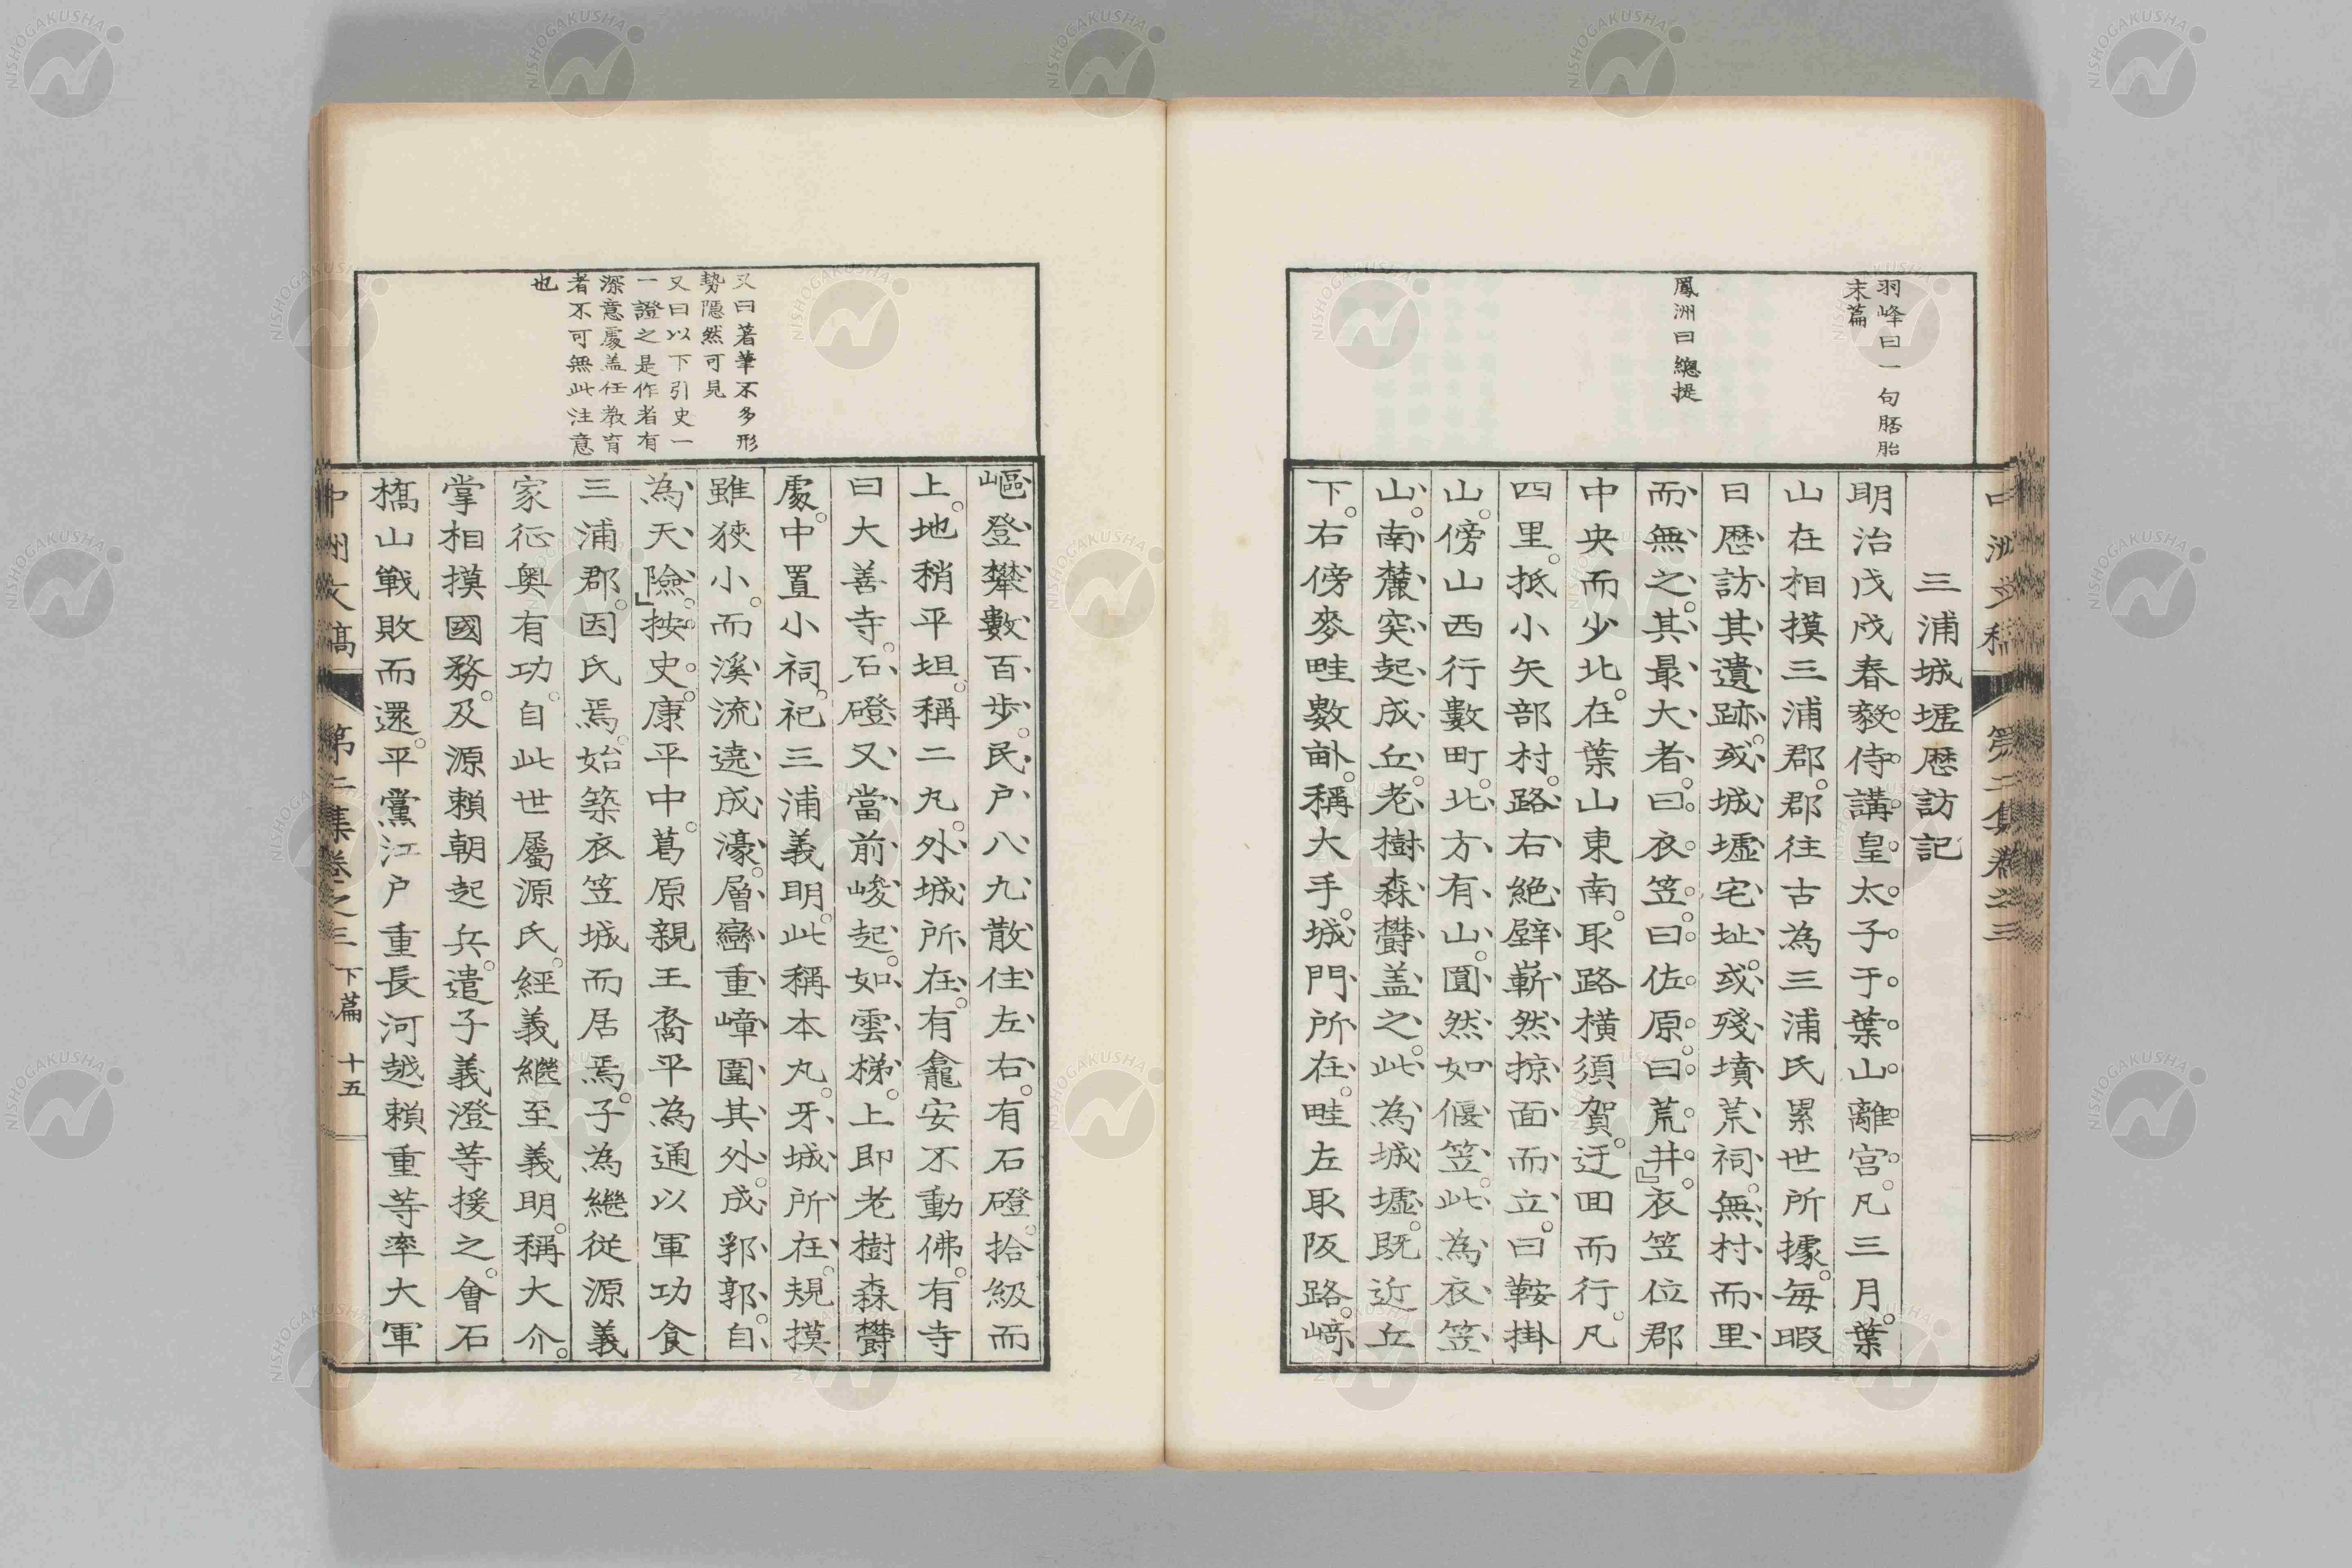 中洲文稿 第二集卷之三
羽峰曰一句胚胎
末篇
鳳洲曰總提
三浦城墟歷訪記
明治戊戌春毅侍講皇太子于葉山離宮。凡三月。葉
山在相摸三浦郡。郡往古為三浦氏累世所據。每暇
日歷訪其遺跡。或城墟宅址。或殘墳荒祠。無村而里
而無之。其最大者。曰衣笠。曰佐原。曰荒井。』衣笠位郡
中央而少北。在葉山東南。取路橫須賀。迂回而行。凡
四里。抵小矢部村。路右絕壁嶄然掠面而立。曰鞍掛
山。傍山西行數町。北方有山。圓然如偃笠。此為衣笠
山。南麓突起成丘。老樹森欝盖之。此為城墟。既近丘
下。右傍麥畦數畝。稱大手。城門所在。畦左取阪路。﨑
嶇登攀數百步。民户八九散住左右。有石磴。拾級而
上。地稍平坦。稱二九。外城所在。有龕安不動佛。有寺
曰大善寺。石磴又當前峻起。如雲梯。上即老樹森欝
處。中置小祠。祀三浦義明。此稱本丸。牙城所在。規摸
雖狹小。而溪流遶成濠。層巒重嶂圍其外。成郛郭。自
為天險。』按史。康平中。葛原親王裔平為通以軍功食
三浦郡。因氏焉。始築衣笠城而居焉。子為繼從源義
家征奥有功。自此世屬源氏。經義繼至義明。稱大介。
掌相摸國務。及源賴朝起兵。遣子義澄等援之。會石
橋山戰敗而還。平黨江户重長河越賴重等率大軍
又曰著筆不多形
勢隱然可見
又曰以下引史一
一證之是作者有
深意處盖任教育
者不可無此注意
也
中洲文稿 第二集卷之三 下篇 十五
NISHOGAKUSHA